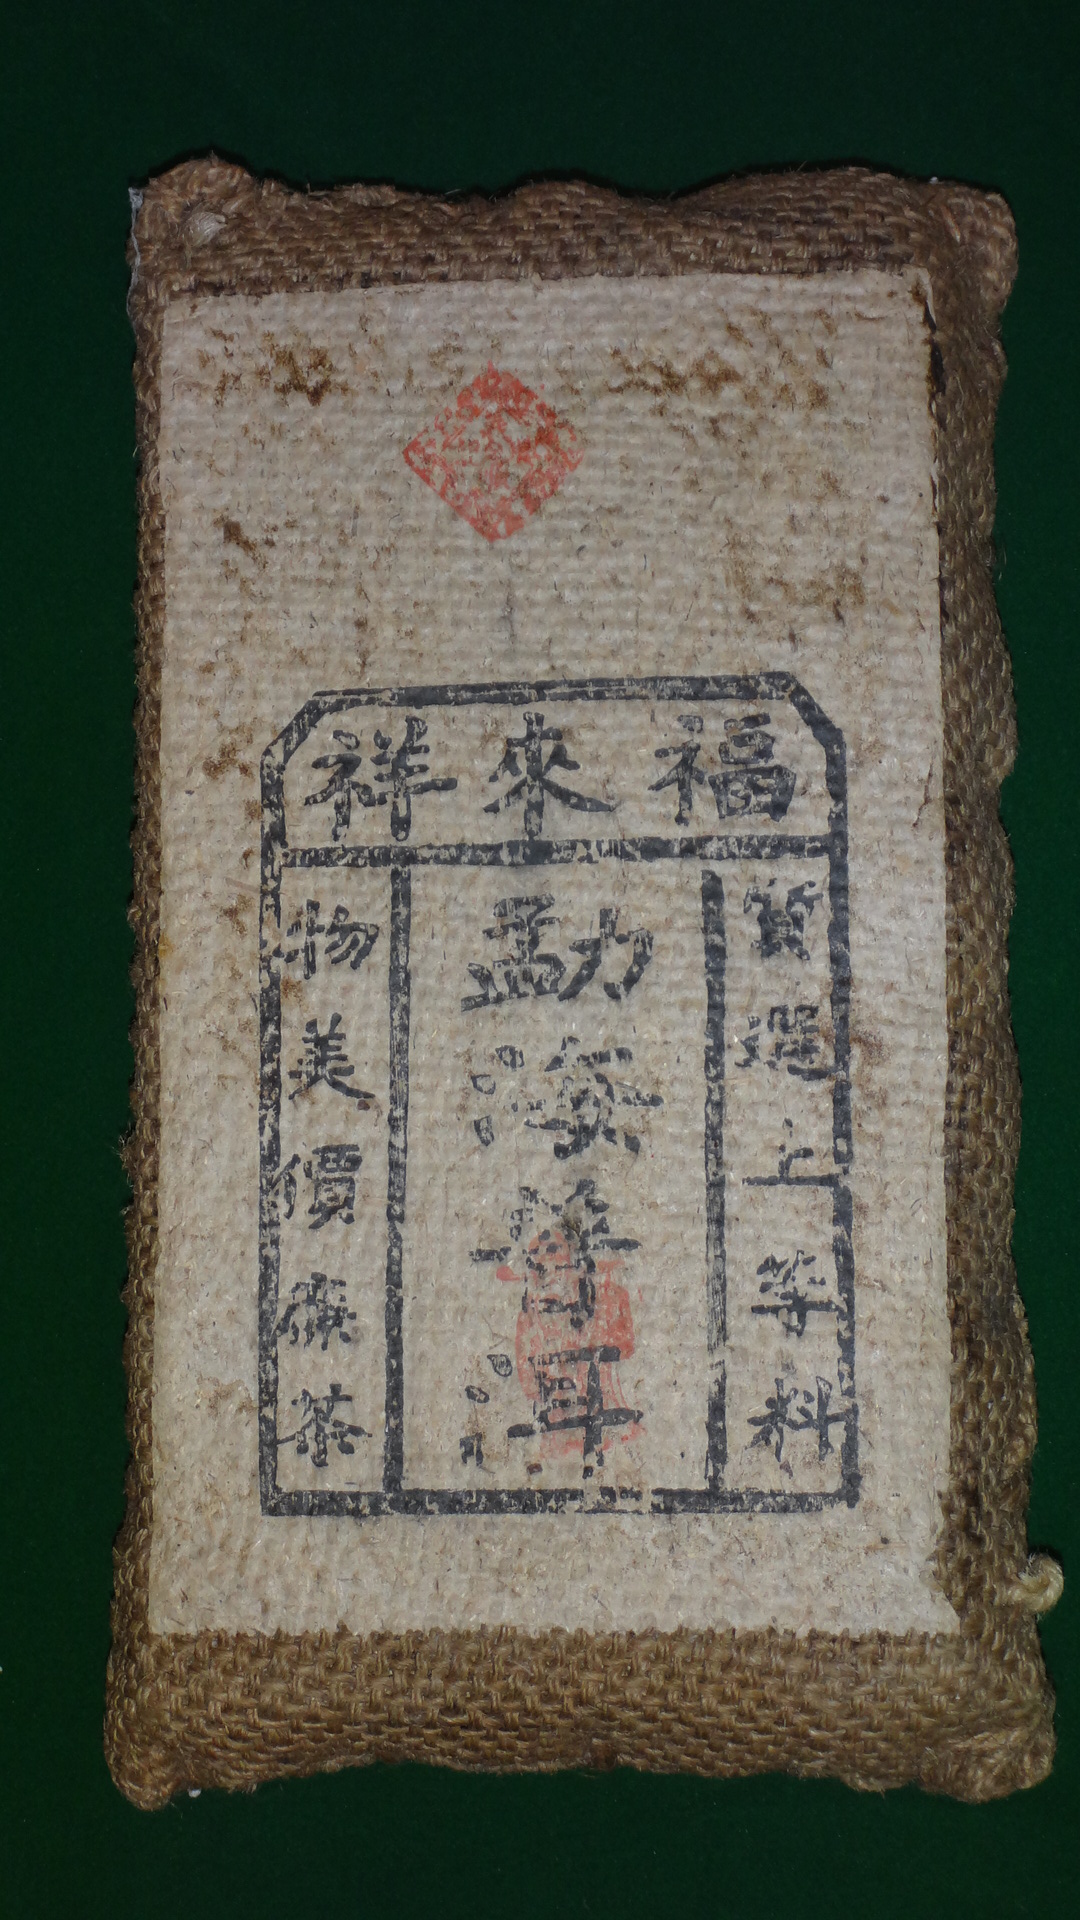 福來祥
質選上等料
勐海普洱
物美價廉茶